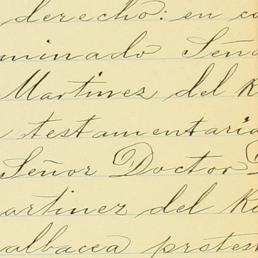 derecho: en co
minado Seño
Martinez del R
testamentaria
Señor Doctor D
artinez del R
albacea protes